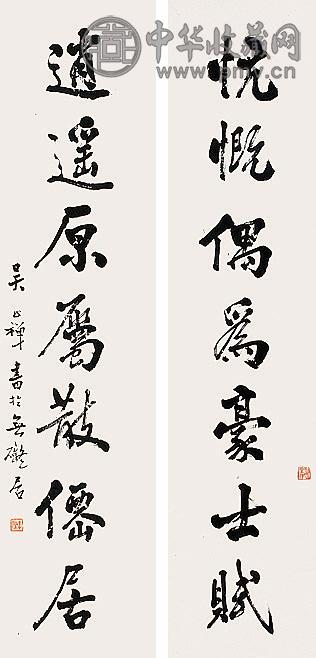 忼慨偶為豪士賦
逍遥原屬散僊居
吴禅書於無礙居
中华收藏网
www.pmy.cn